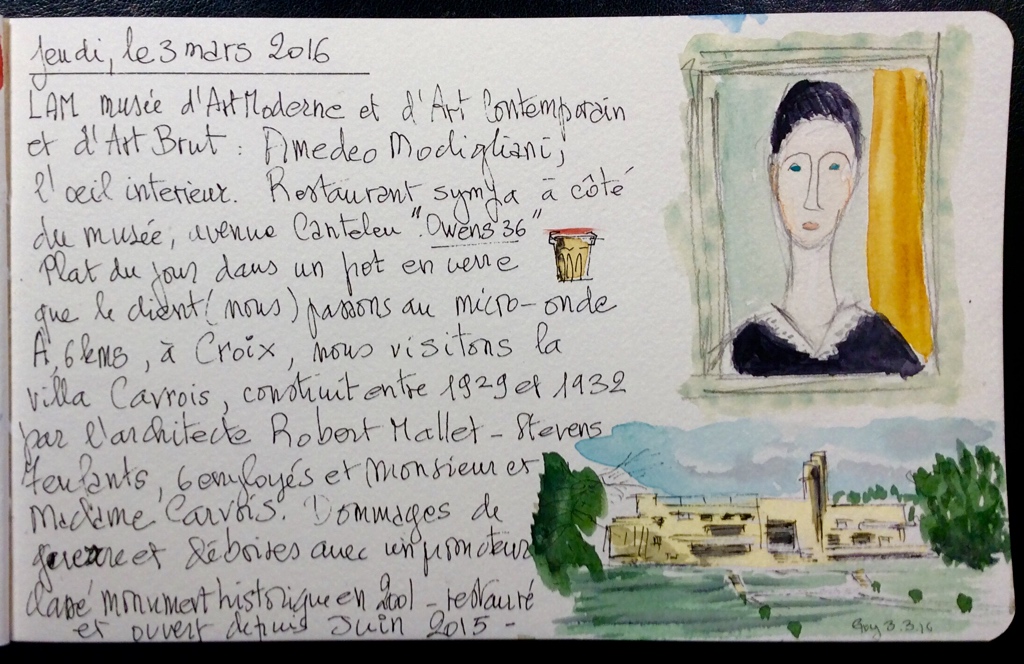 Jeudi, le 3 mars 2016
LAM musée d'Art Moderne et d'Art Contemporain
et d'Art Brut : Amedeo Modigliani,
l'œil interieur. Restaurant sympa à côté
du musée, avenue Canteleu "Owens 36"
Plat du jour dans un pot en verre
que le client (nous) passons au micro-onde
A, 6 kms, à Croix, nous visitons la
villa Cavrois, construit entre 1929 et 1932
par l'architecte Robert Mallet-Stevens
7 enfants, 6 employés et Monsieur et
Madame Cavrois. Dommages de
guerre et déboires avec un promoteur
classé monument historique en 2001 - restauré
et ouvert depuis Juin 2015 -
Goy 3.3.16